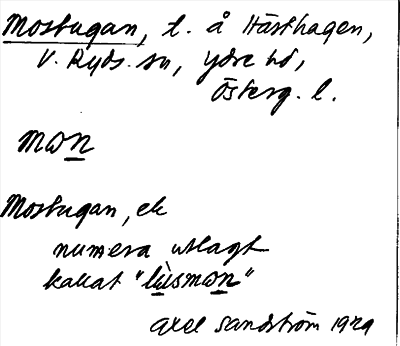 Mostugan, t. å Hästhagen,
V. Ryds sn, Ydre hd,
Österg. l.
mon
Mostugan, ek
numera utlagt
kallat "lùsmon"
Axel Sandström 1929